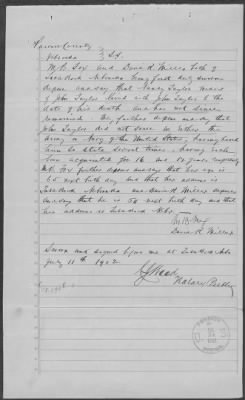 Pawnee County }
Nebraska } S.S.
M. B. Fox and David R. Miller both of
Table Rock Nebraska being first duly sworn
depose and say that Nancy Taylor widow
of John Taylor lived with John Taylor to the
date of his death and has not since
remarried. They further depose and say that
John Taylor did not serve in either the
Army or Navy of the United States, having
him to state several times. having each
been acquainted for 16 and years respectively
M. B. Fox further deposes and says that his age is
65 next birth day and that his address is
Table Rock Nebraska and David R. Miller deposes
and say that he is 58 next birth day and that
his address is Table Rock Nebr.
M. B. Fox
David R. Miller
Sworn and signed before me at Table Rock Neb
July 11th 1902.
Notary Public